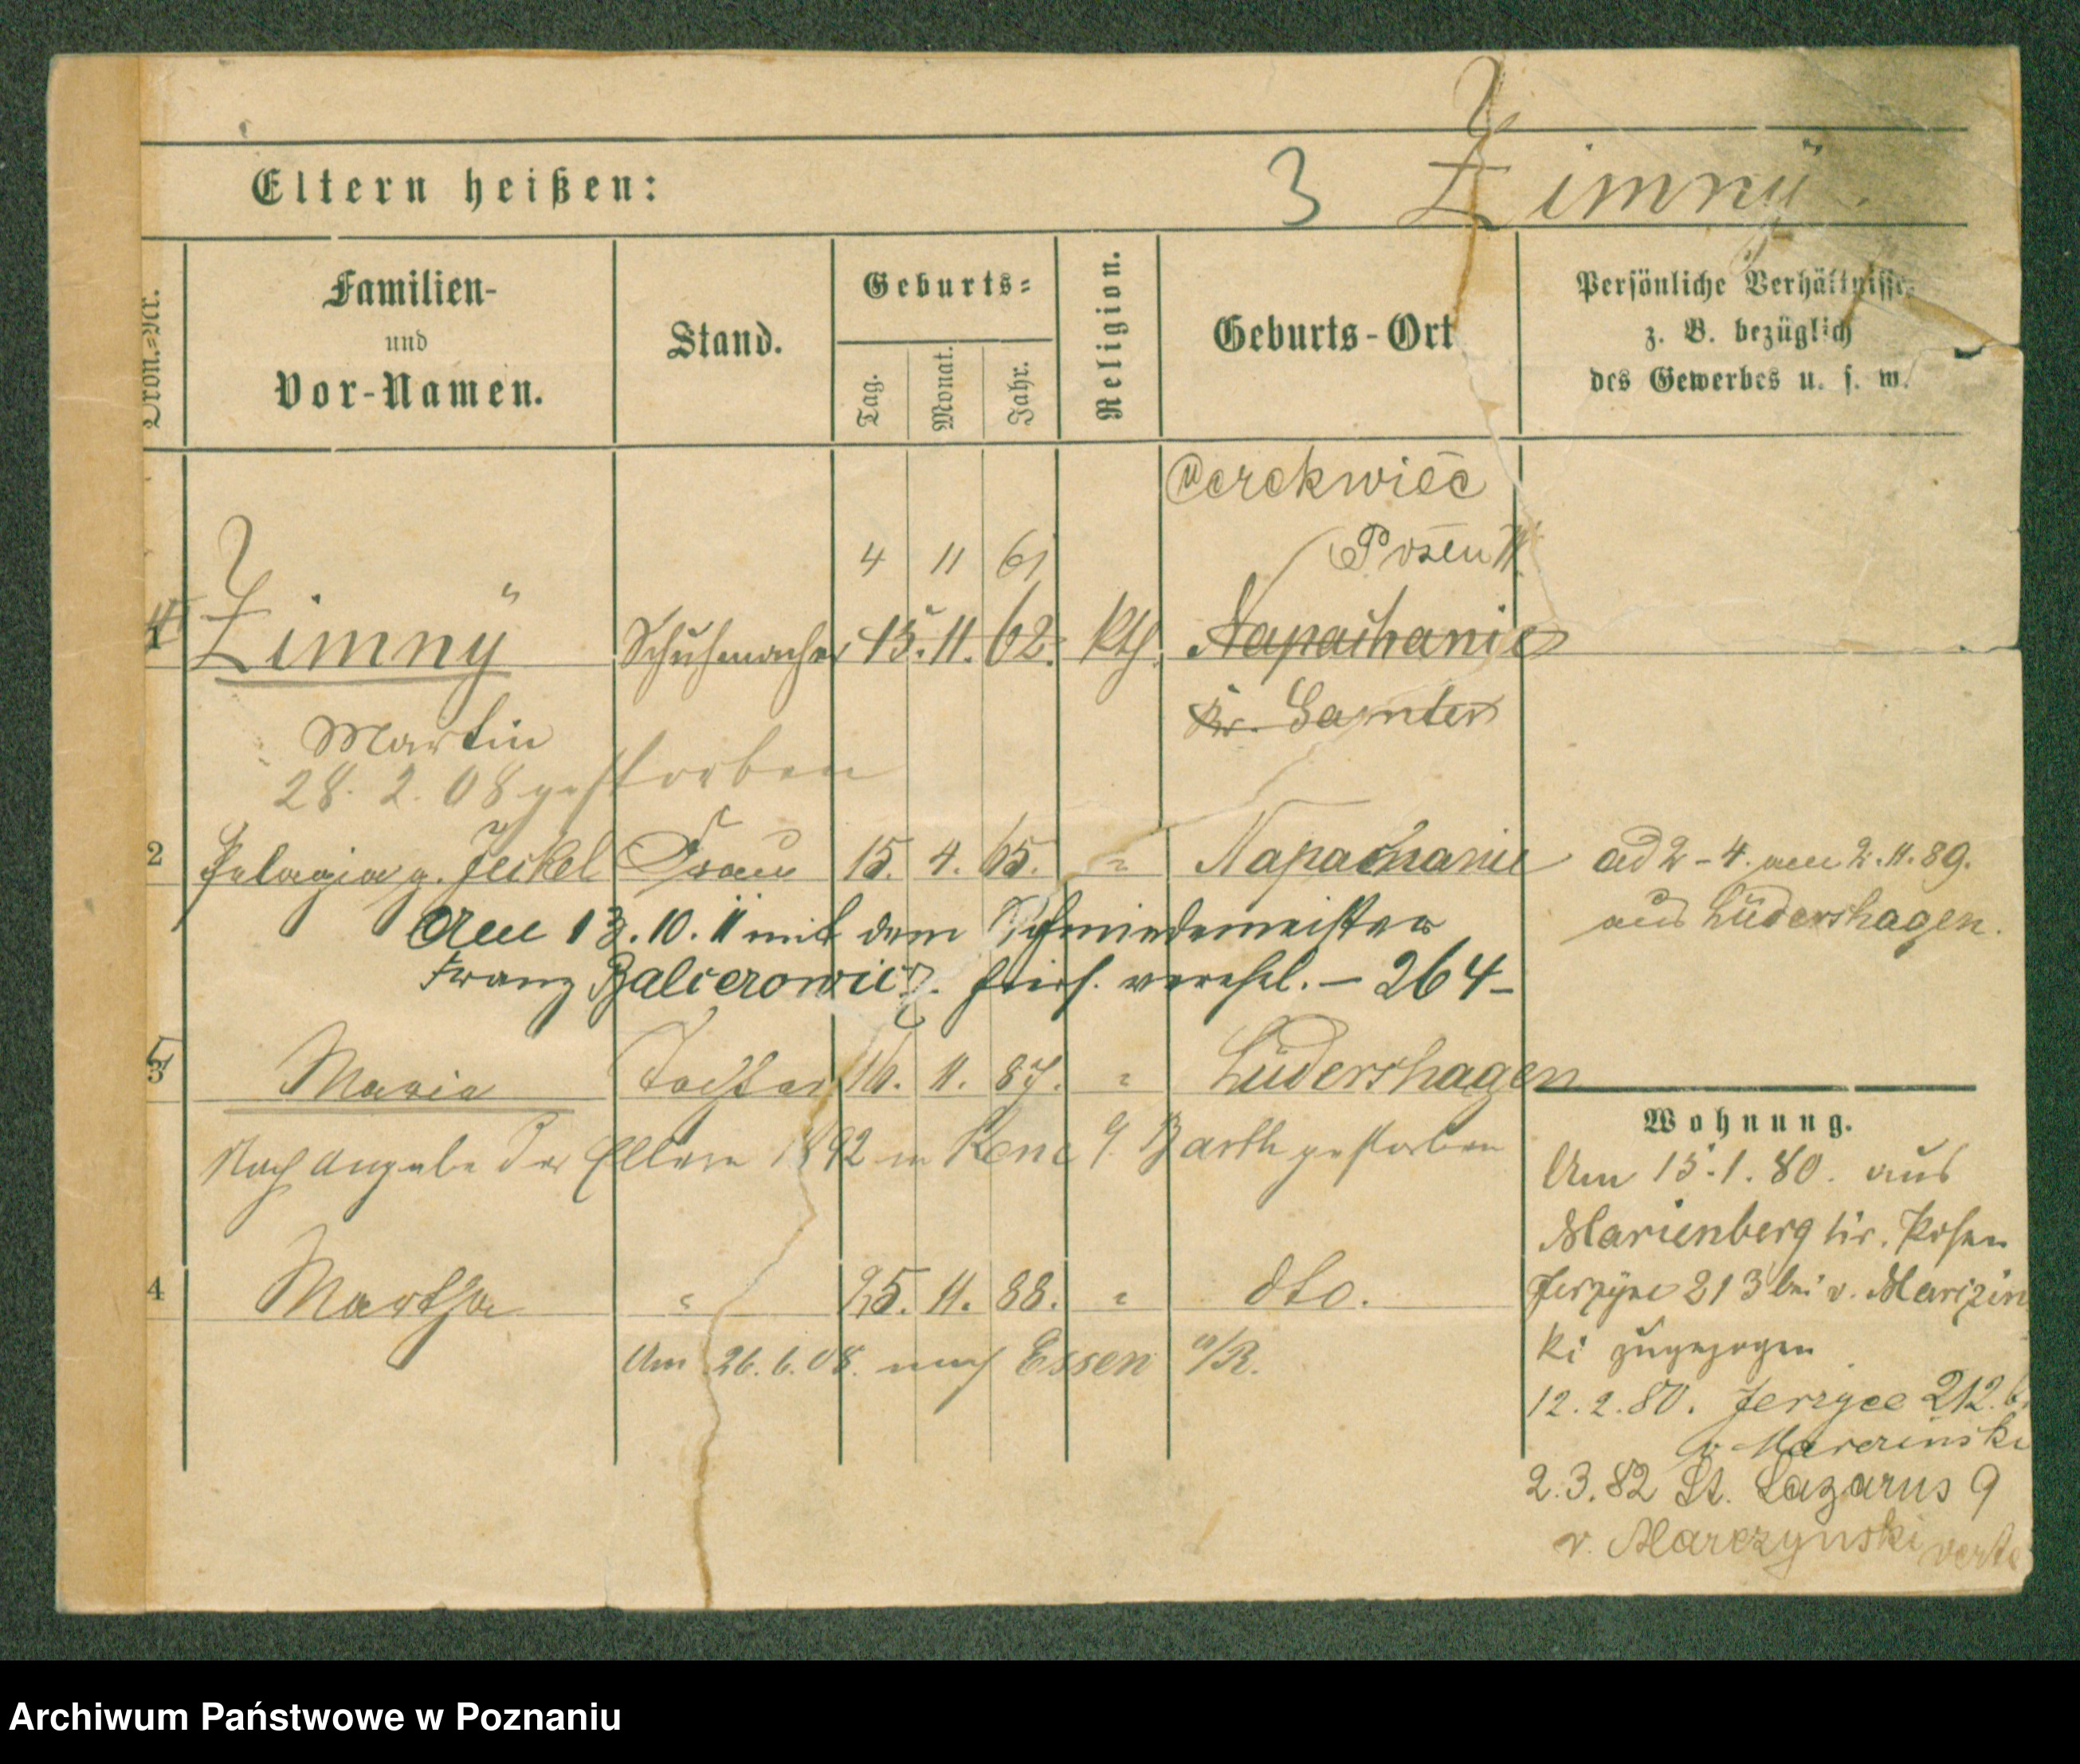 Eltern heißen:
3 Zimny
Familien-
und
Vor-Namen.
Stand.
Geburts-
Tag.
Monat.
Jahr.
Religion.
Geburts-Ort
Persönliche Verhältnisse,
z. B. bezüglich
des Gewerbes u. s. w.
Cerekwice
Posen W
4 11 61
1 Zimny Schuhmacher 15. 11. 62. kth. Napachanie
Kr. Samter
Martin
28. 2. 08 gestorben
2 Pelagia g. Jeikel Frau 15. 4. 65. " Napachanie
ad 2-4. am 2. 11. 89.
aus Lüdershagen.
Am 13. 10. 11 mit dem Schmiedemeister
Franz Balcerowicz hier verehel. – 264 –
3 Maria Tochter 16. 11. 87. " Lüdershagen
Nach Angabe der Eltern 1892 in Barth gestorben
4 Martha " 25. 11. 88. " dto.
Am 26. 6. 08. nach Essen a/R.
Wohnung.
Am 15. 1. 80. aus
Marienberg Kr. Posen
Jerzyce 213 bei v.
ki zugezogen
12. 2. 80. Jerzyce 212. b.
v.
2. 3. 82 St. Lazarus 9
v. Marczynski verte
Archiwum Państwowe w Poznaniu